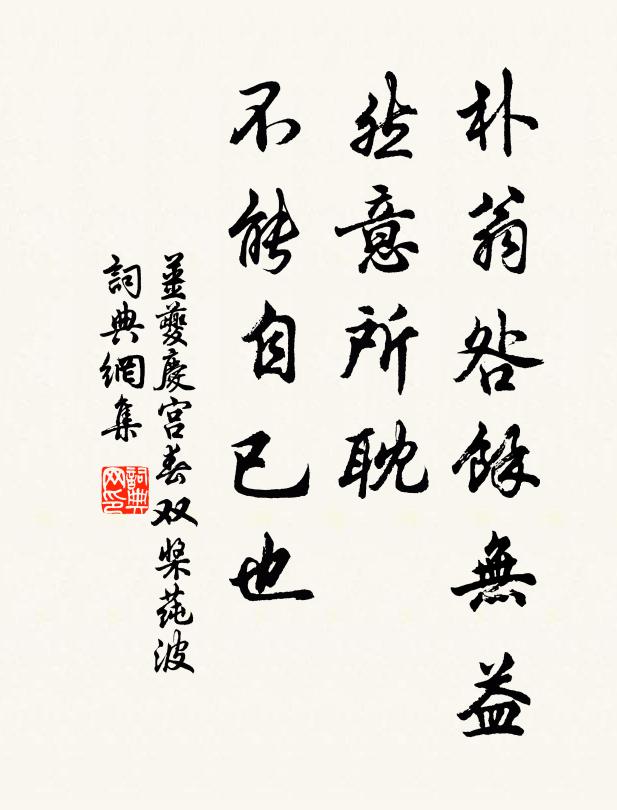 朴翁咎餘無益
然意所耽
不能自已也
姜夔慶宮春双槳莼波
詞典網集
詞典网印